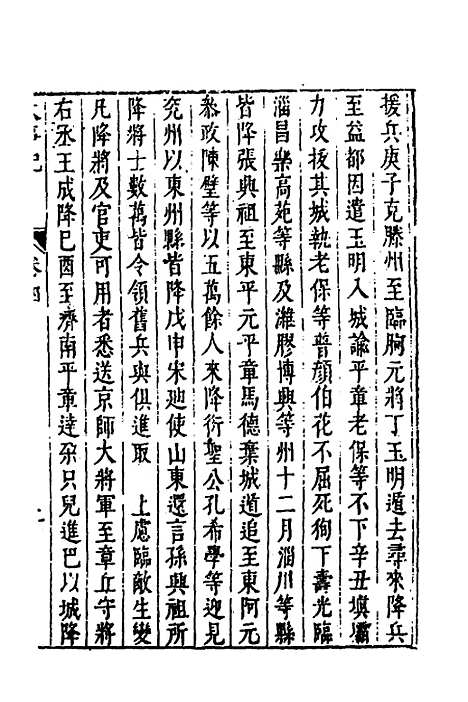 援兵庚子克滕州至臨朐元將丁玉明遁去尋來降兵
至益都因遣玉明入城諭平章老保等不下辛丑填壩
力攻拔其城執老保等普顏伯花不屈死狥下壽光臨
淄昌樂高苑等縣及濰膠博興等州十二月淄川等縣
皆降張興祖至東平元平章馬德棄城遁追至東阿元
叅政陳璧等以五萬餘人來降衍聖公孔希學等迎見
兖州以東州縣皆降戊申宋廸使山東還言孫興祖所
降將士數萬皆令領舊兵與俱進取 上慮臨敵生變
凡降將及官吏可用者悉送京師大將軍至章丘守將
右丞王成降巳酉至濟南平章逹朶只兒進巴以城降
大事記 卷四